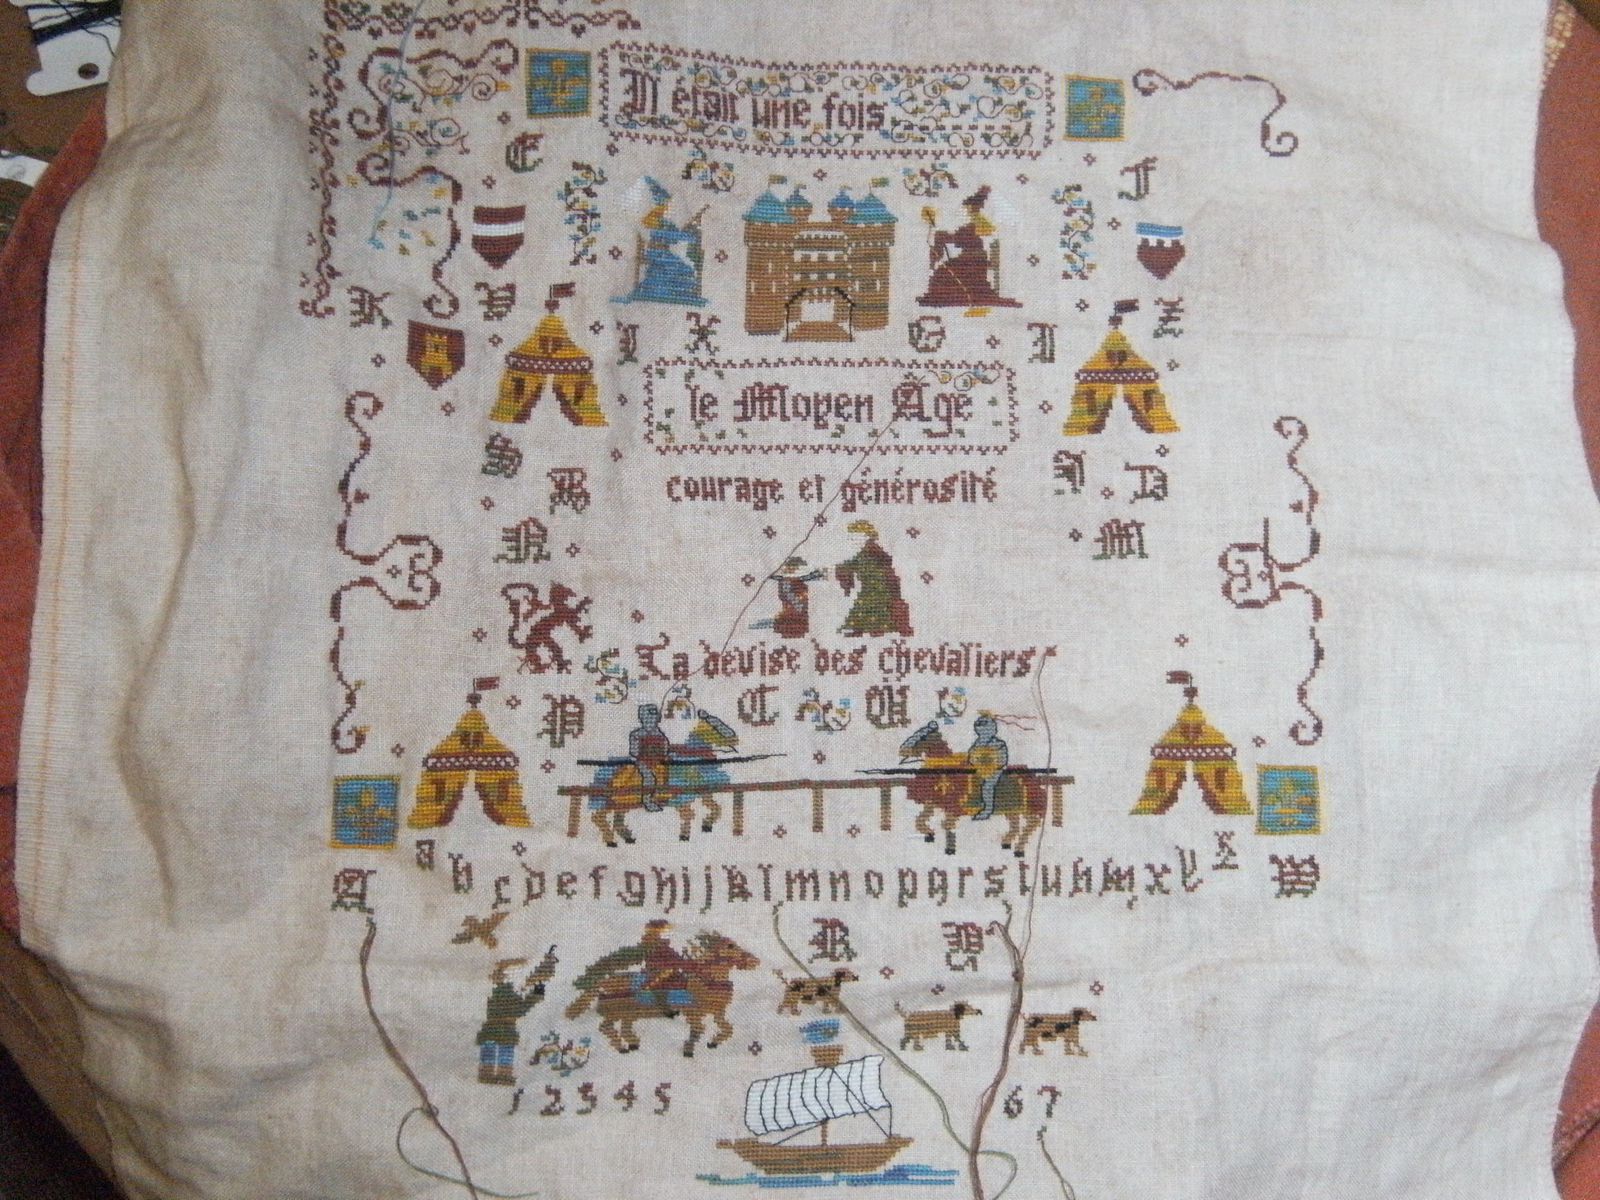 Il était une fois
E J
K
X G I
le Moyen Age
S
B
courage et générosité
N M
La devise des chevaliers
P C U
A a b c d e f g h i j k l m n o p q r s t u v w x y z W
R Y
1 2 3 4 5 6 7